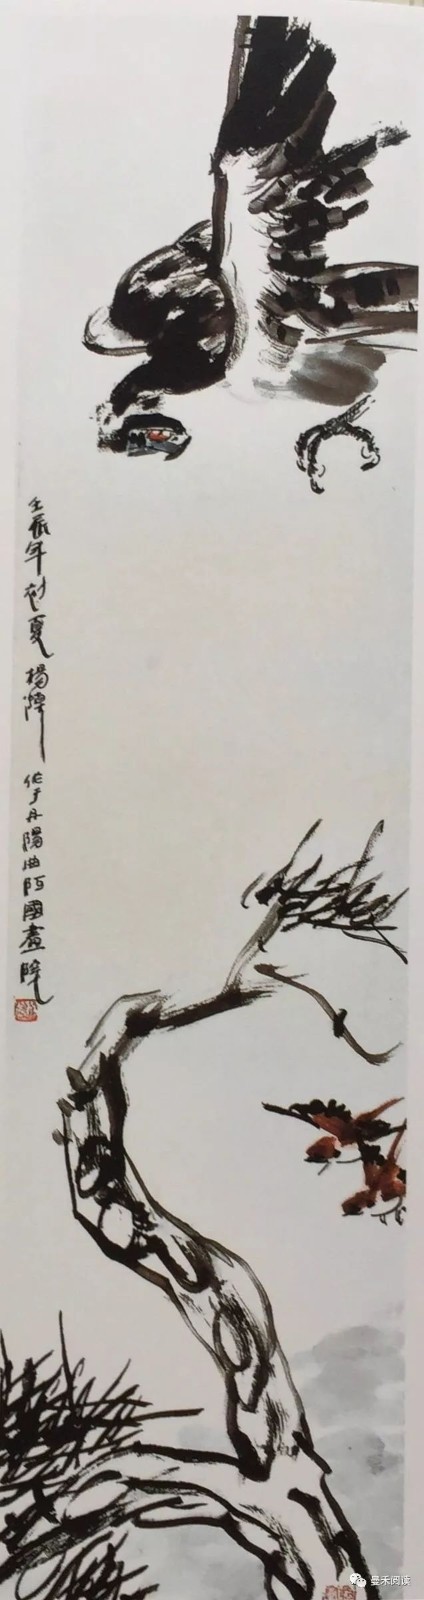 壬辰年初夏 杨降 作于丹陽曲阿國畫院
曼禾阅读